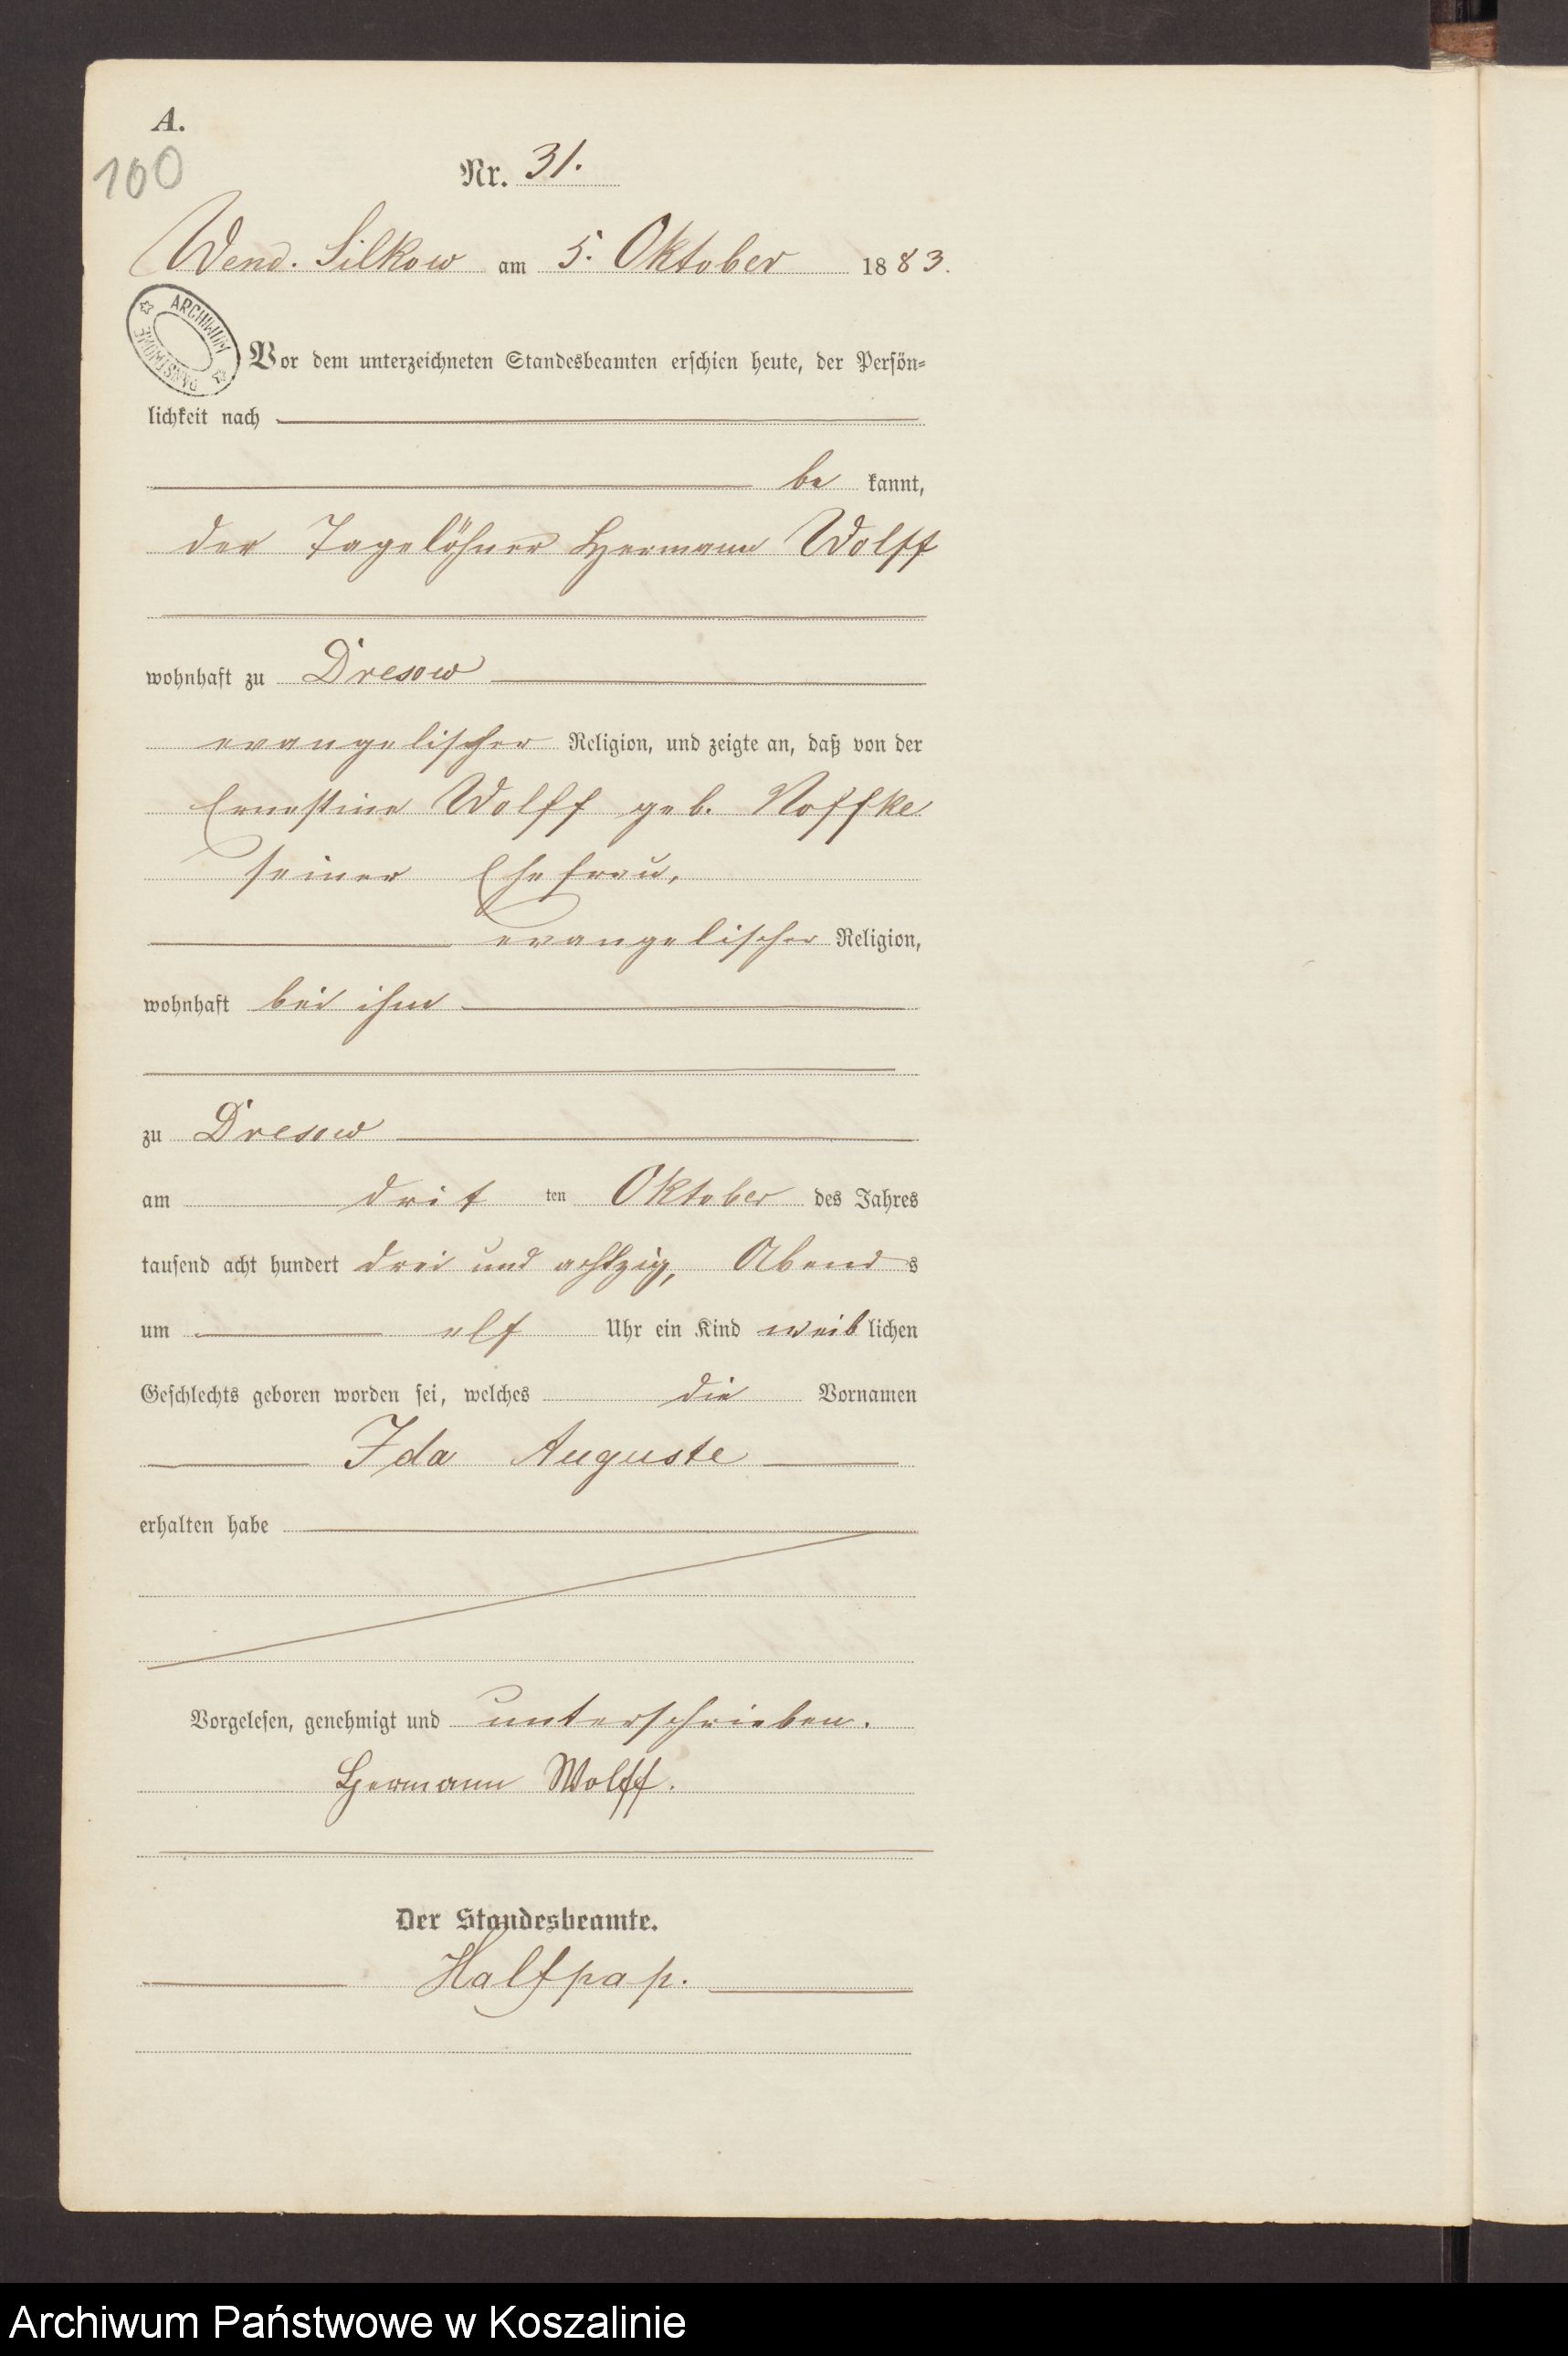 A.
100
Nr. 31.
Wend. Silkow am 5. Oktober 1883.
ARCHIWUM PAŃSTWOWE
Vor dem unterzeichneten Standesbeamten erschien heute, der Persön-
lichkeit nach
be kannt,
der Tagelöhner Hermann Wolff
wohnhaft zu Dresow
evangelischer Religion, und zeigte an, daß von der
Ernestine Wolff geb. Noffke
seiner Ehefrau,
evangelischer Religion,
wohnhaft bei ihm
zu Dresow
am drit ten Oktober des Jahres
tausend acht hundert drei und achtzig, Abend s
um elf Uhr ein Kind weib lichen
Geschlechts geboren worden sei, welches die Vornamen
Ida Auguste
erhalten habe
Vorgelesen, genehmigt und unterschrieben.
Hermann Wolff.
Der Standesbeamte.
Halfpap.
Archiwum Państwowe w Koszalinie